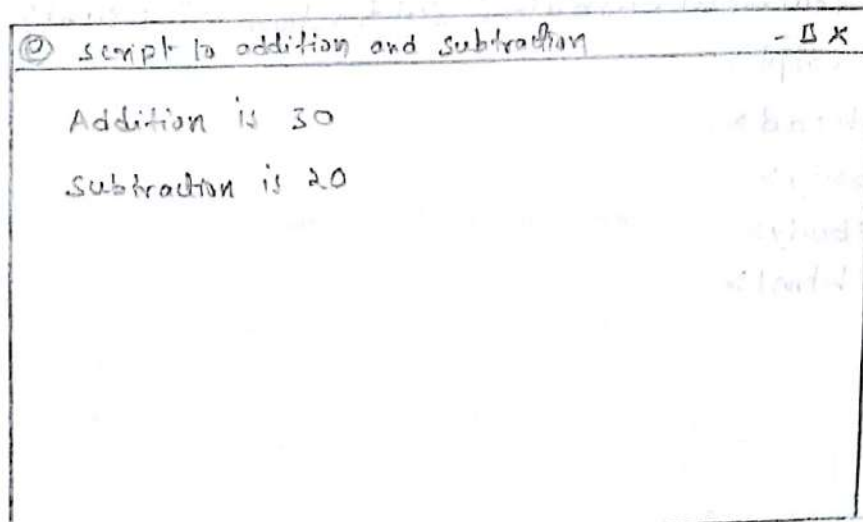 script to addition and subtraction
Addition is 30
Subtraction is 20